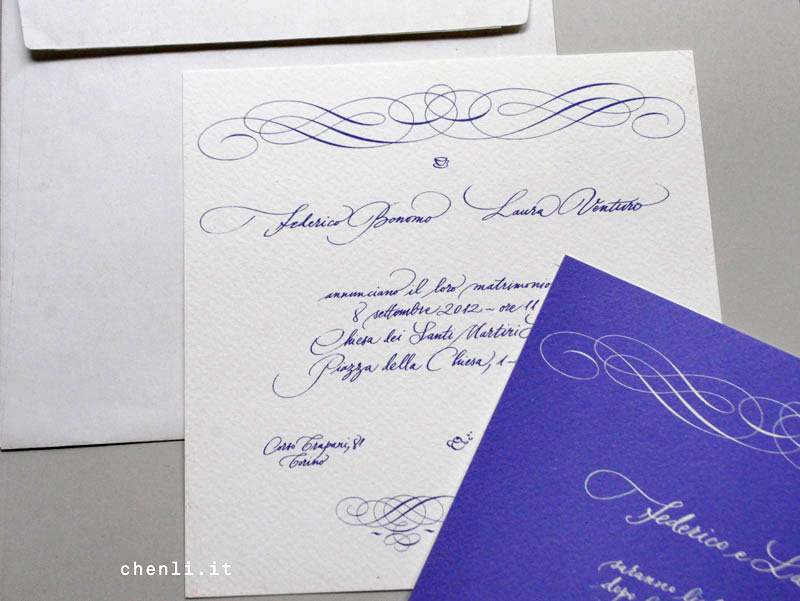 Federico Bonomo Laura Venturo
annunciano il loro matrimonio
8 settembre 2012 ~ ore 11
Chiesa dei Santi Martiri
Piazza della Chiesa, 1
Corso Trapani, 81
Torino
Federico e
saranno
dopo
chenli.it